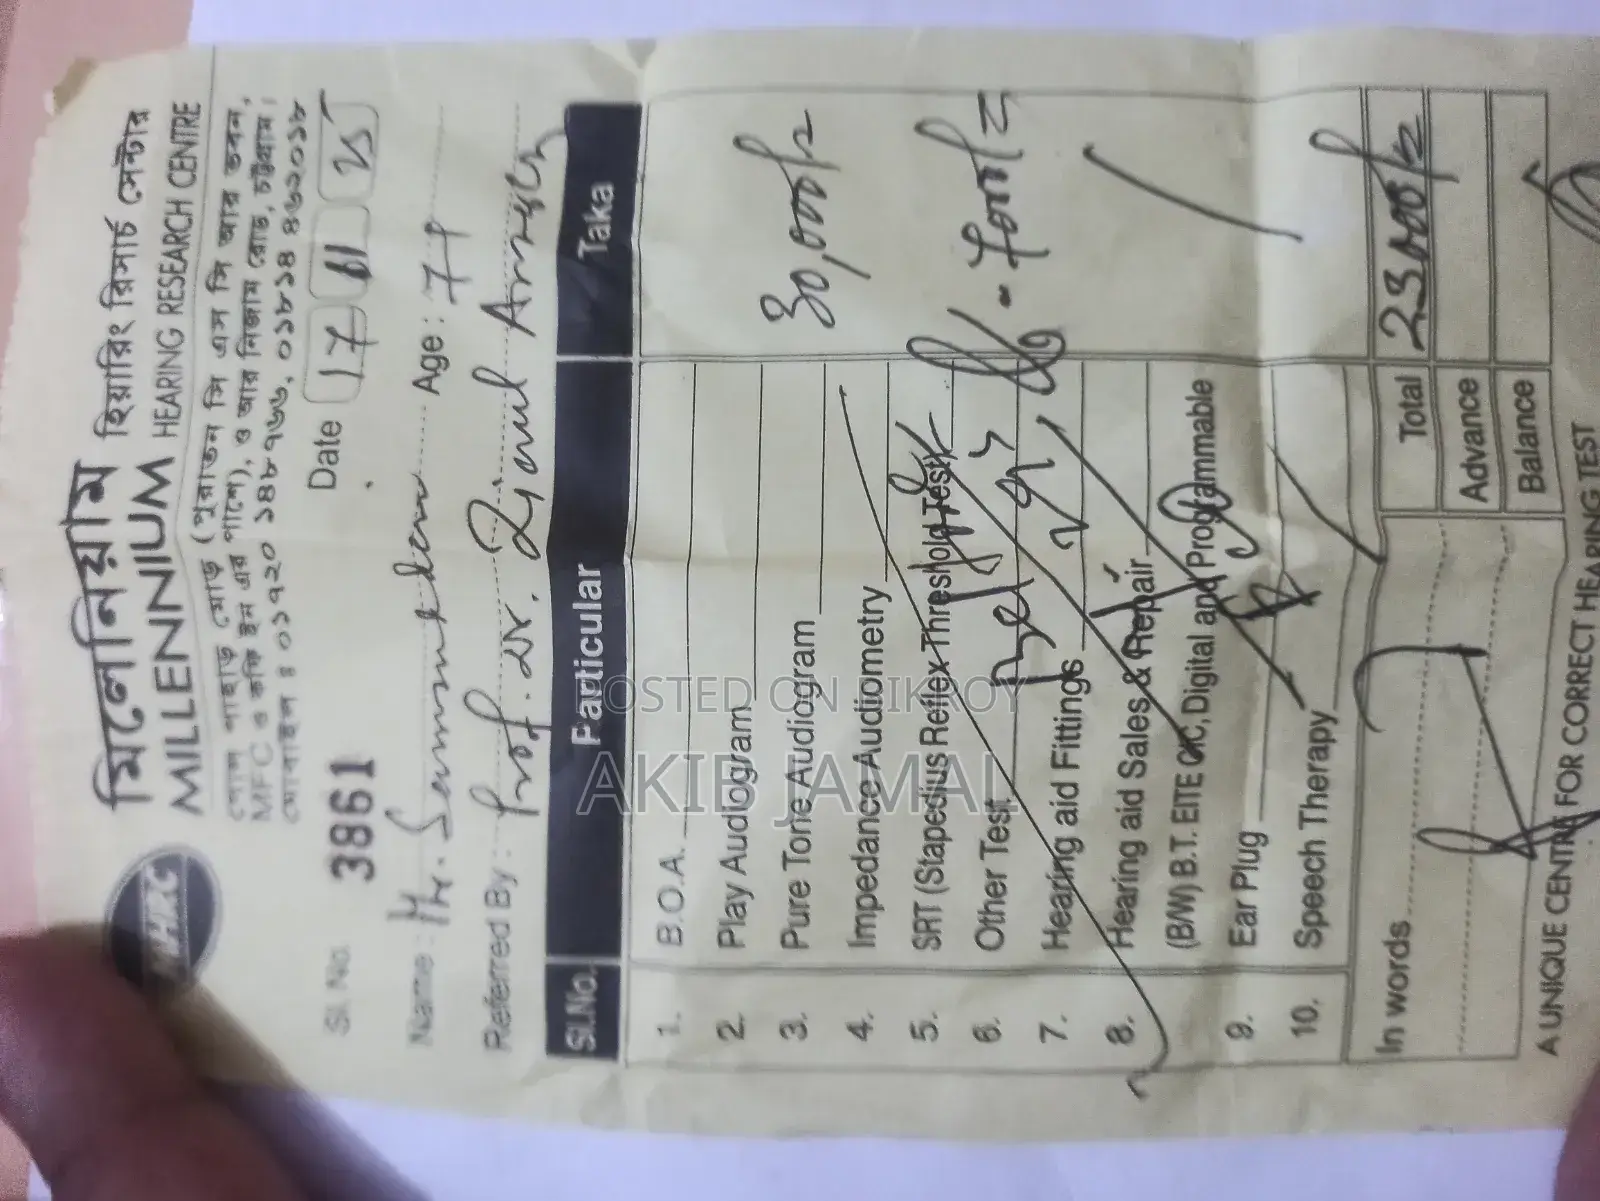 মিলেনিয়াম হিয়ারিং রিসার্চ সেন্টার
MILLENNIUM HEARING RESEARCH CENTRE
গোল পাহাড় মোড় (পুরাতন সি এস সি আর ভবন,
MFC ও কফি ইন এর পাশে), ও আর নিজাম রোড, চট্টগ্রাম।
মোবাইল ঃ ০১৭২০ ১৪৮৭৬৬, ০১৮১৪ ৪৬২০১৮
Sl. No. 3861 Date 17 11 25
Name: Mr. Age: 77
Referred By: Prof. Dr. Ziaul Ansar
Sl.No. Particular Taka
1. B.O.A.
2. Play Audiogram
3. Pure Tone Audiogram 30,000/=
4. Impedance Audiometry
5. SRT (Stapedius Reflex Threshold Test)
6. Other Test - 7000/=
7. Hearing aid Fittings
8. Hearing aid Sales & Repair
(B/W) B.T. EITE CIC, Digital and Programmable
9. Ear Plug
10. Speech Therapy
In words Total 23000/=
Advance
Balance
A UNIQUE CENTRE FOR CORRECT HEARING TEST
POSTED ON BIKROY
AKIB JAMAL